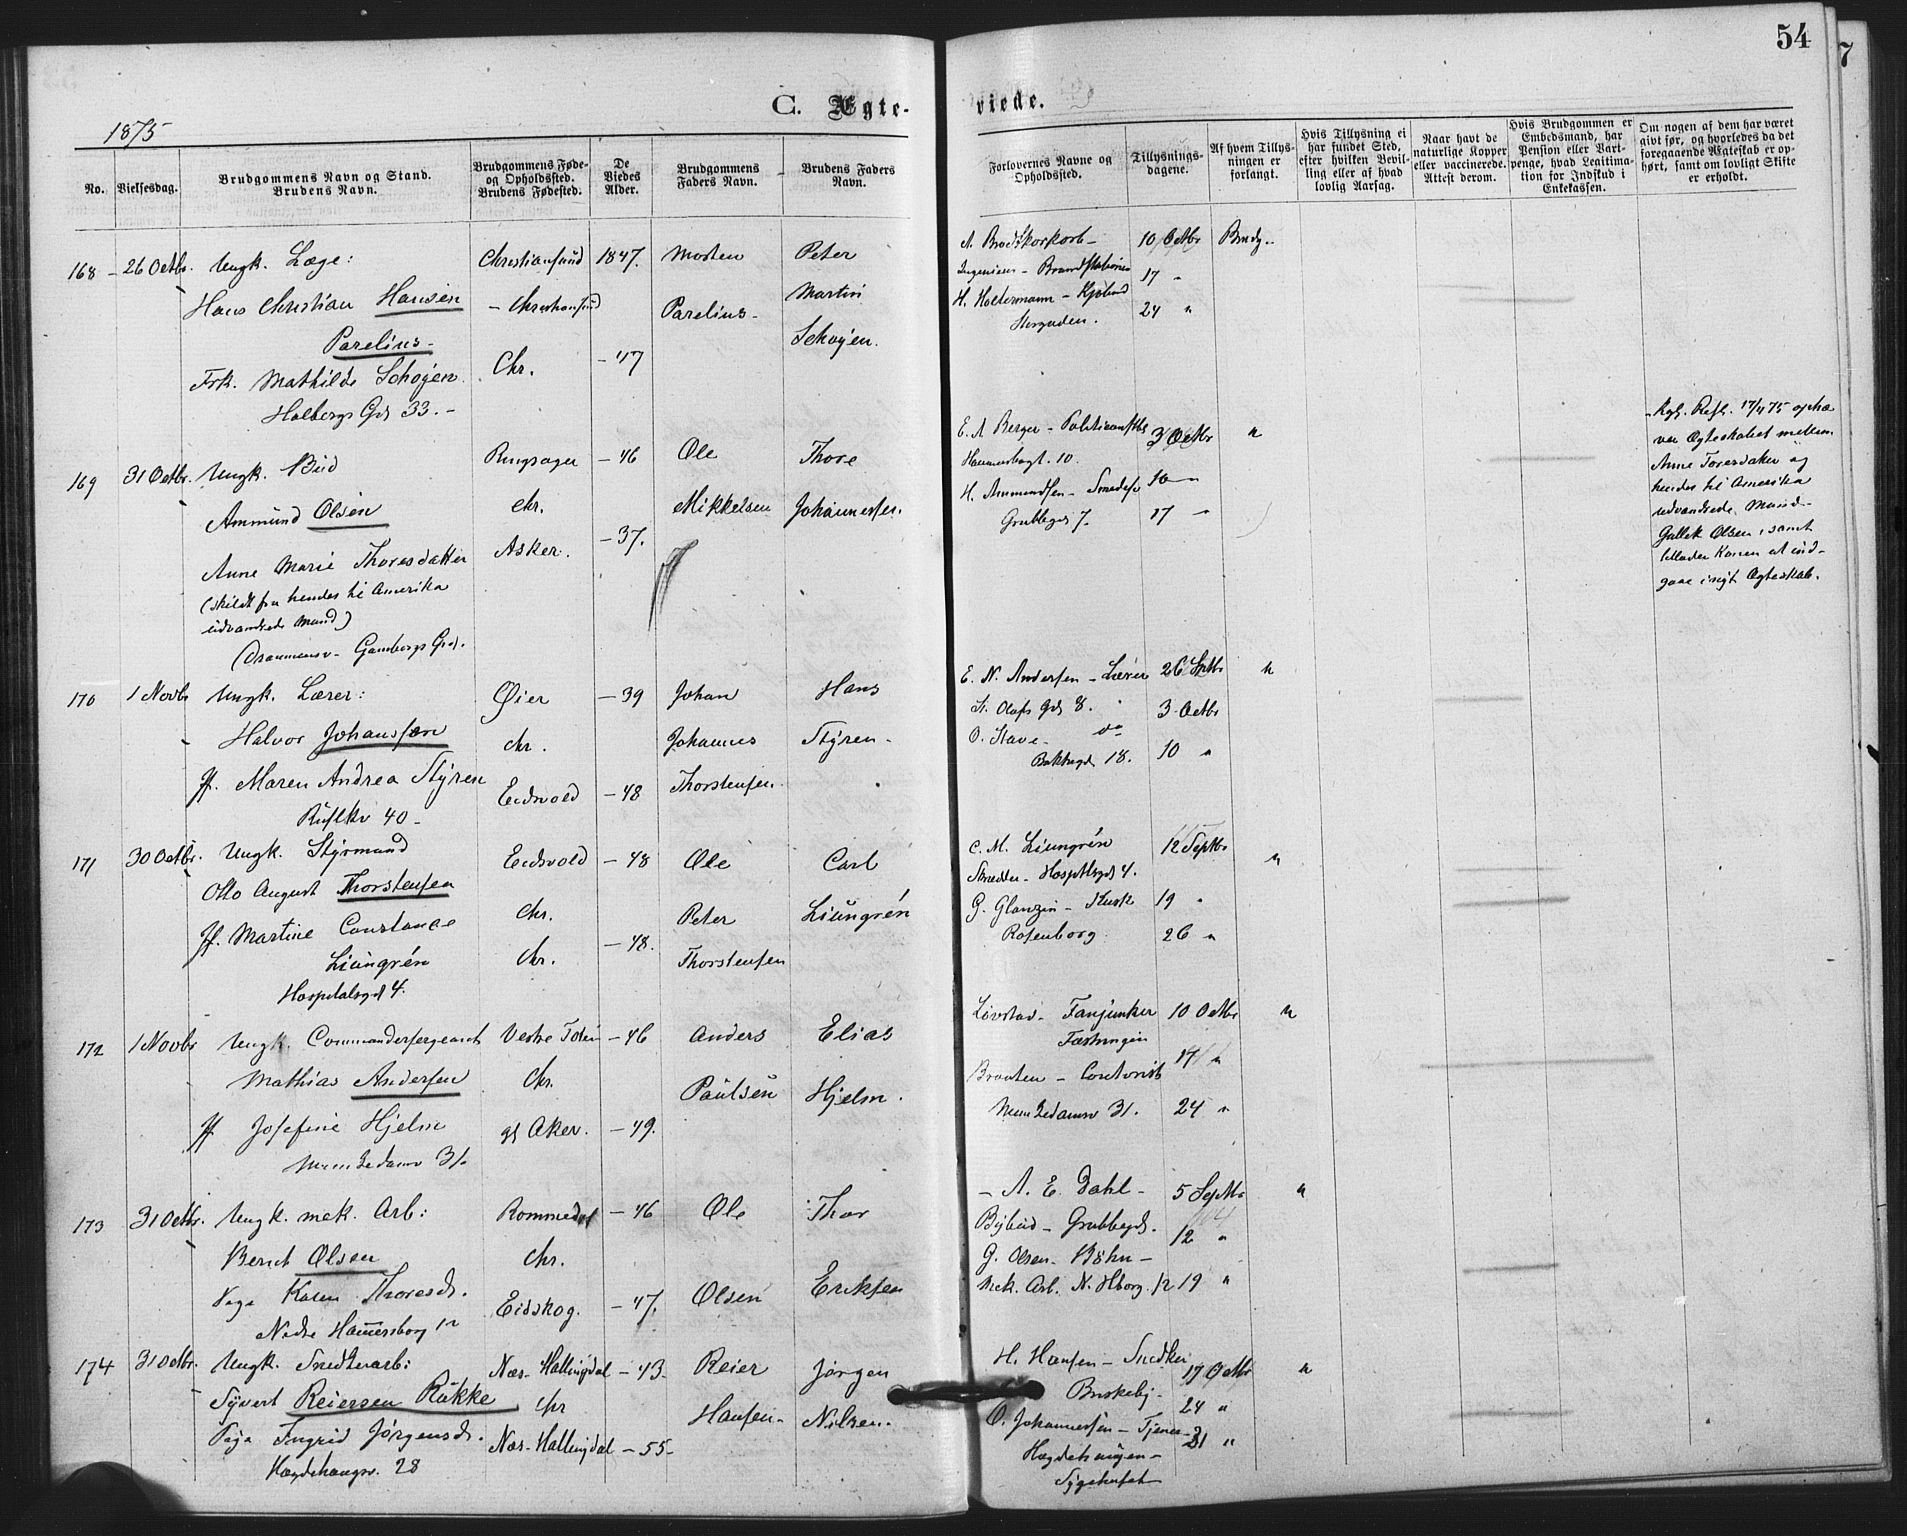 54
7
C. Ægte-
viede.
1875
No.
Vielsesdag.
Brudgommens Navn og Stand.
Brudens Navn.
Brudgommens Føde-
og Opholdssted.
Brudens Fødested.
De
Viedes
Alder.
Brudgommens
Faders Navn.
Brudens Faders
Navn.
Forlovernes Navne og
Opholdssted.
Tillysnings-
dagene.
Af hvem Tillys-
ningen er
forlangt.
Hvis Tillysning ei
har fundet Sted,
efter hvilken Bevil-
ling eller af hvad
lovlig Aarsag.
Naar havt de
naturlige Kopper
eller vaccinerede.
Attest derom.
Hvis Brudgommen er
Embedsmand, har
Pension eller Vart-
penge, hvad Legitima-
tion for Indskud i
Enkekassen.
Om nogen af dem har været
givt før, og hvorledes da det
foregaaende Ægteskab er op-
hørt, samt om lovligt Skifte
er erholdt.
168 – 26 Octbr. Ungk. Læge: Christiansund 1847. Morten Peter
Hans Christian Hansen – Christiansund Parelius – Martin
Parelius – Schøjen.
Frk. Mathilde Schøjen. Chr. – 47
Holbergs Gd 33. –
10 Octbr Brudg..
Ingenieur – Brandstationen 17 "
H. Holtermann – 24 "
Storgaden.
169 31 Octbr. Ungk. Bud Ringsager – 46 Ole Thore
Ammund Olsen Chr. Mikkelsen Johannessen.
Anne Marie Thoresdatter Asker. – 37.
(skildt fra hendes til Amerika
udvandrede Mand)
Drammensv – Gambergs Grd.
E. A Berger – 3 Octbr "
Hammersbgt. 10. 10 – "
H. Ammundsen – Smedesv
Grubbegd 7. 17 "
– Kgl. Resl. 17/4 75 ophæ
ver Ægteskabet mellem
Anne Toresdatter og
hendes til Amerika
udvandrede Mand –
Gullik Olsen, samt
tillader Konen at ind-
gaae i nyt Ægteskab.
170 1 Novbr Ungk. Lærer: Øier – 39 Johan Hans
Halvor Johanssen Chr. Johannes Styren –
Pf. Maren Andrea Styren Eidsvold – 48 Thorstensen.
Ruslkv 40 –
E. N. Andersen – Lærer 26 Sptbr "
St. Olafs Gd 8. 3 Octbr
O. Stave – do
Bakkegd 18. 10 "
171 30 Octbr. Ungk. Styrmand Eidsvold – 48 Ole Carl
Otto August Thorstensen Chr. Peter Liungrén
Pf. Martine Constance Chr. – 48. Thorstensen
Liungrén
Hospitalsgd 4.
C. M. Liungrén 12 Septbr "
Snedker – Hospitlsgd 4.
G. Glanzin – Kusk 19 "
Rosenborg 26 "
172 1 Novbr Ungk. Commandersergeant Vestre Toten – 46 Anders Elias
Mathias Andersen Chr. Paulsen Hjelm.
Pf Josefine Hjelm gl Aker. – 49.
Munkedamsv 31.
Løvstad – Fanjunker 10 Octbr "
Fæstningen
Braaten – Contorist 17 "
Munkedamsv 31. 24 "
173 31 Octbr. Ungk. mek. Arb: Rommedal – 46 Ole Thor
Bernt Olsen Chr. Olsen Eriksen
Pige Karen Thoresd. Eidskog. – 47.
Nedre Hammersborg 12
– A. E. Dahl – 5 Septbr "
Bybud – Grubbegd. 12 "
G. Olsen – Bøhn –
Mek. Arb. N. Hborg. 12 19 "
174 31 Octbr. Ungk. Snedkerarb: Næs – Hallingdal – 43. Reier Jørgen
Syvert Reiersen Rukke Chr Hansen – Nilsen.
Pige Ingrid Jørgensd. Næs – Hallingdal – 55 –
Hægdehaugsv. 28
H. Hansen – Snedker 17 Octbr "
Briskeby – 24 "
O. Johannessen – Tjener – 31 "
Hægdehaugen –
Sygehuset